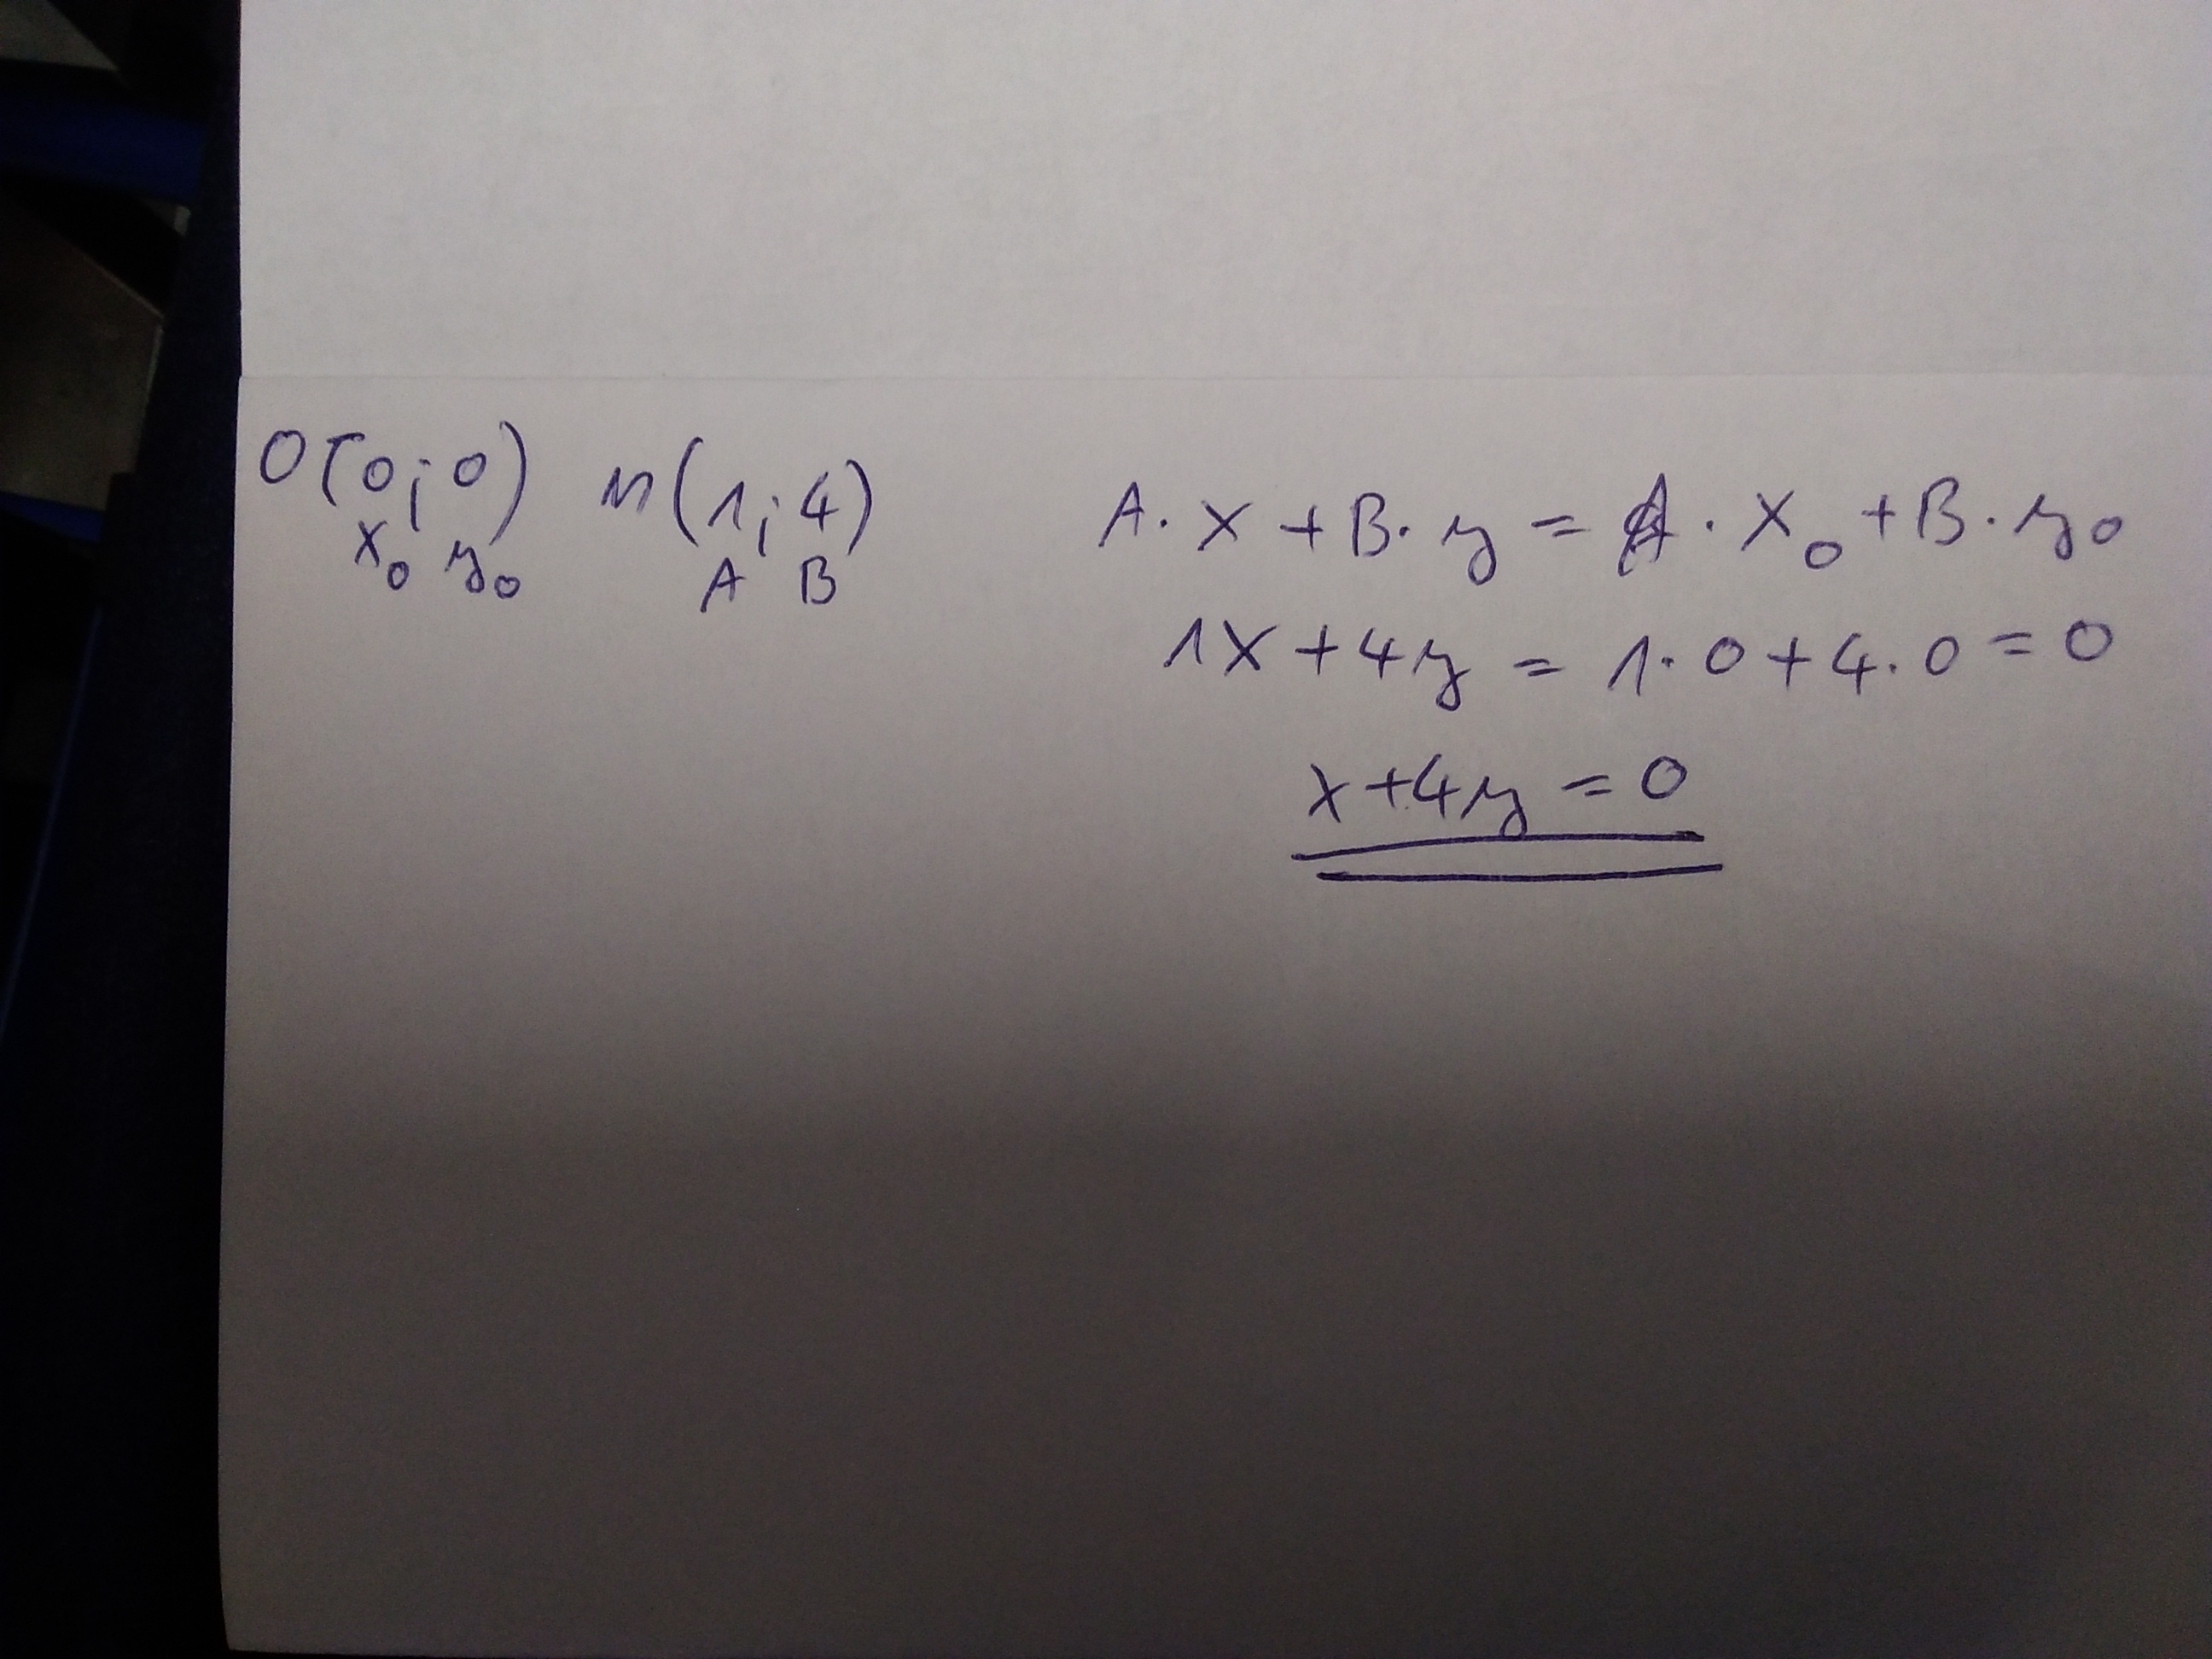 O(0;0) n(1;4)
x₀ y₀ A B
A·x+B·y=A·x₀+B·y₀
1x+4y=1·0+4·0=0
x+4y=0